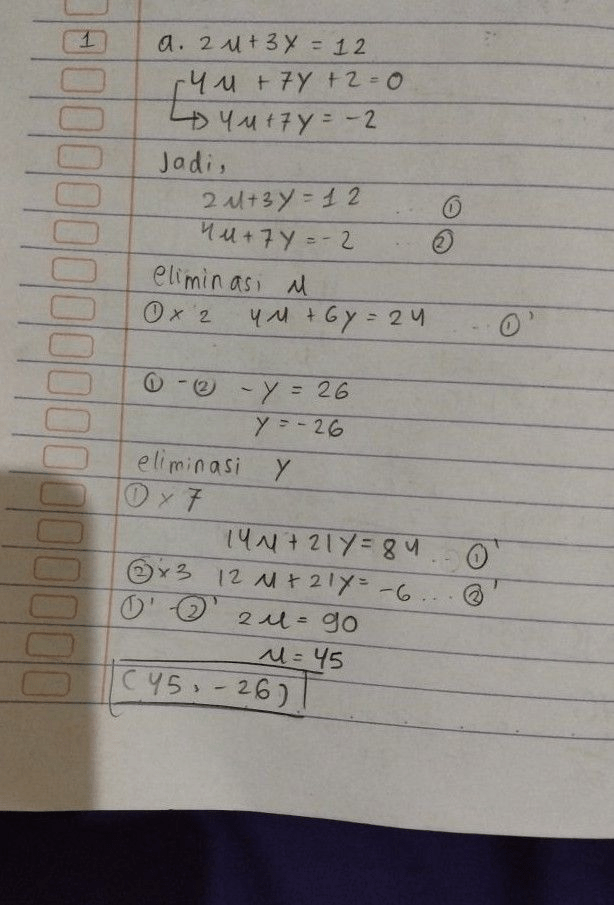 1 a. 2x+3y = 12
4x + 7y + 2 = 0
→ 4x+7y = -2
Jadi,
2x+3y = 12 ... ①
4x+7y = -2 ... ②
eliminasi x
① × 2 4x + 6y = 24 ... ①'
① - ② -y = 26
y = -26
eliminasi y
① × 7
14x + 21y = 84 ... ①'
② × 3 12x + 21y = -6 ... ②'
①' - ②' 2x = 90
x = 45
(45, -26)